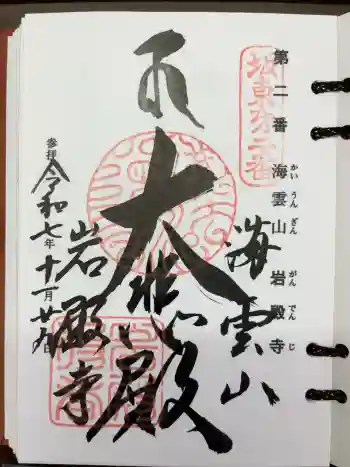 第二番 海雲山岩殿寺
かいうんざんがんでんじ
坂東第二番
海雲山
大悲殿
岩殿寺
参拝
令和七年十一月廿九日